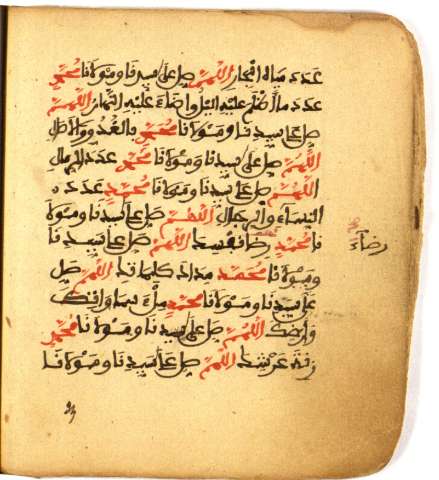 عدد مياه البحار اللهم صل على سيدنا ومولانا محمد
عدد ما أظلم عليه اليل واضاء عليه النهار اللهم
صل على سيدنا ومولانا محمد بالغدو والاصال
اللهم صل على سيدنا ومولانا محمد عدد الرمال
اللهم صل على سيدنا ومولانا محمد عدد
النساء والرجال اللهم صل على سيدنا ومولا
نا محمد رضا نفسك اللهم صل على سيدنا
رضاء
ومولانا محمد مداد كلماتك اللهم صل
على سيدنا ومولانا محمد ملء سماواتك
وارضك اللهم صل على سيدنا ومولانا محمد
زنة عرشك اللهم صل على سيدنا ومولانا